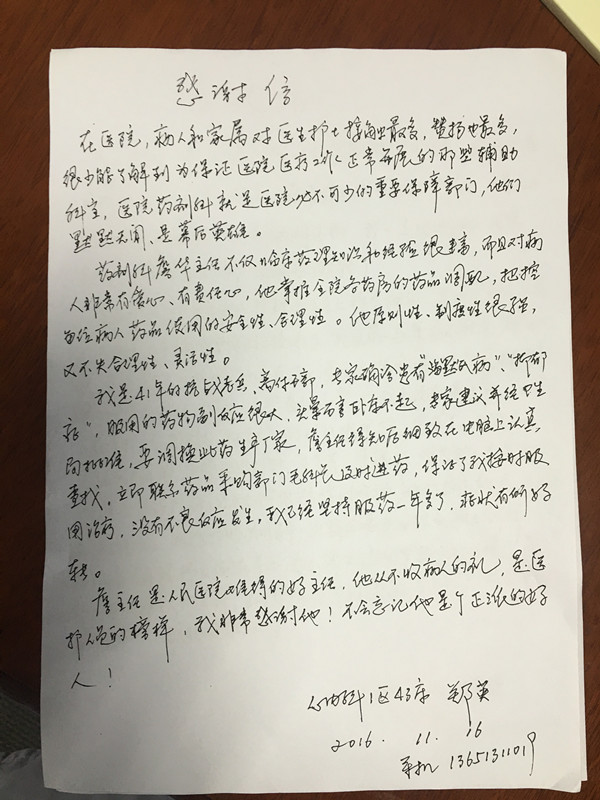 感谢信
在医院，病人和家属对医生护士接触最多，赞扬也最多，
很少能了解到为保证医院医疗工作正常开展的那些辅助
科室，医院药剂科就是医院必不可少的重要保障部门，他们
默默无闻、是幕后英雄。
药剂科詹华主任不仅临床药理知识和经验很丰富，而且对病
人非常有爱心、有责任心，他掌握全院各药房的药品调配，把控
每位病人药品使用的安全性、合理性。他原则性、制度性很强，
又不失合理性、灵活性。
我是41年的抗战老兵，离休干部，专家确诊患有“海默氏病”、“抑郁
症”，服用的药物副反应很大，头晕而害卧床不起，专家建议并经卫生
局批准，要调换此药生产厂家，詹主任得知后细致在电脑上认真
查找，立即联系药品采购部门毛科长及时进药，保证了我按时服
用治疗，没有不良反应发生，我已经坚持服药一年多了，症状有所好
转。
詹主任是人民医院难得的好主任，他从不收病人的礼，是医
护人员的榜样，我非常感谢他！不会忘记他是个正派的好
人！
心内科1区43床 郑英
2016. 11. 16
手机 13651311019